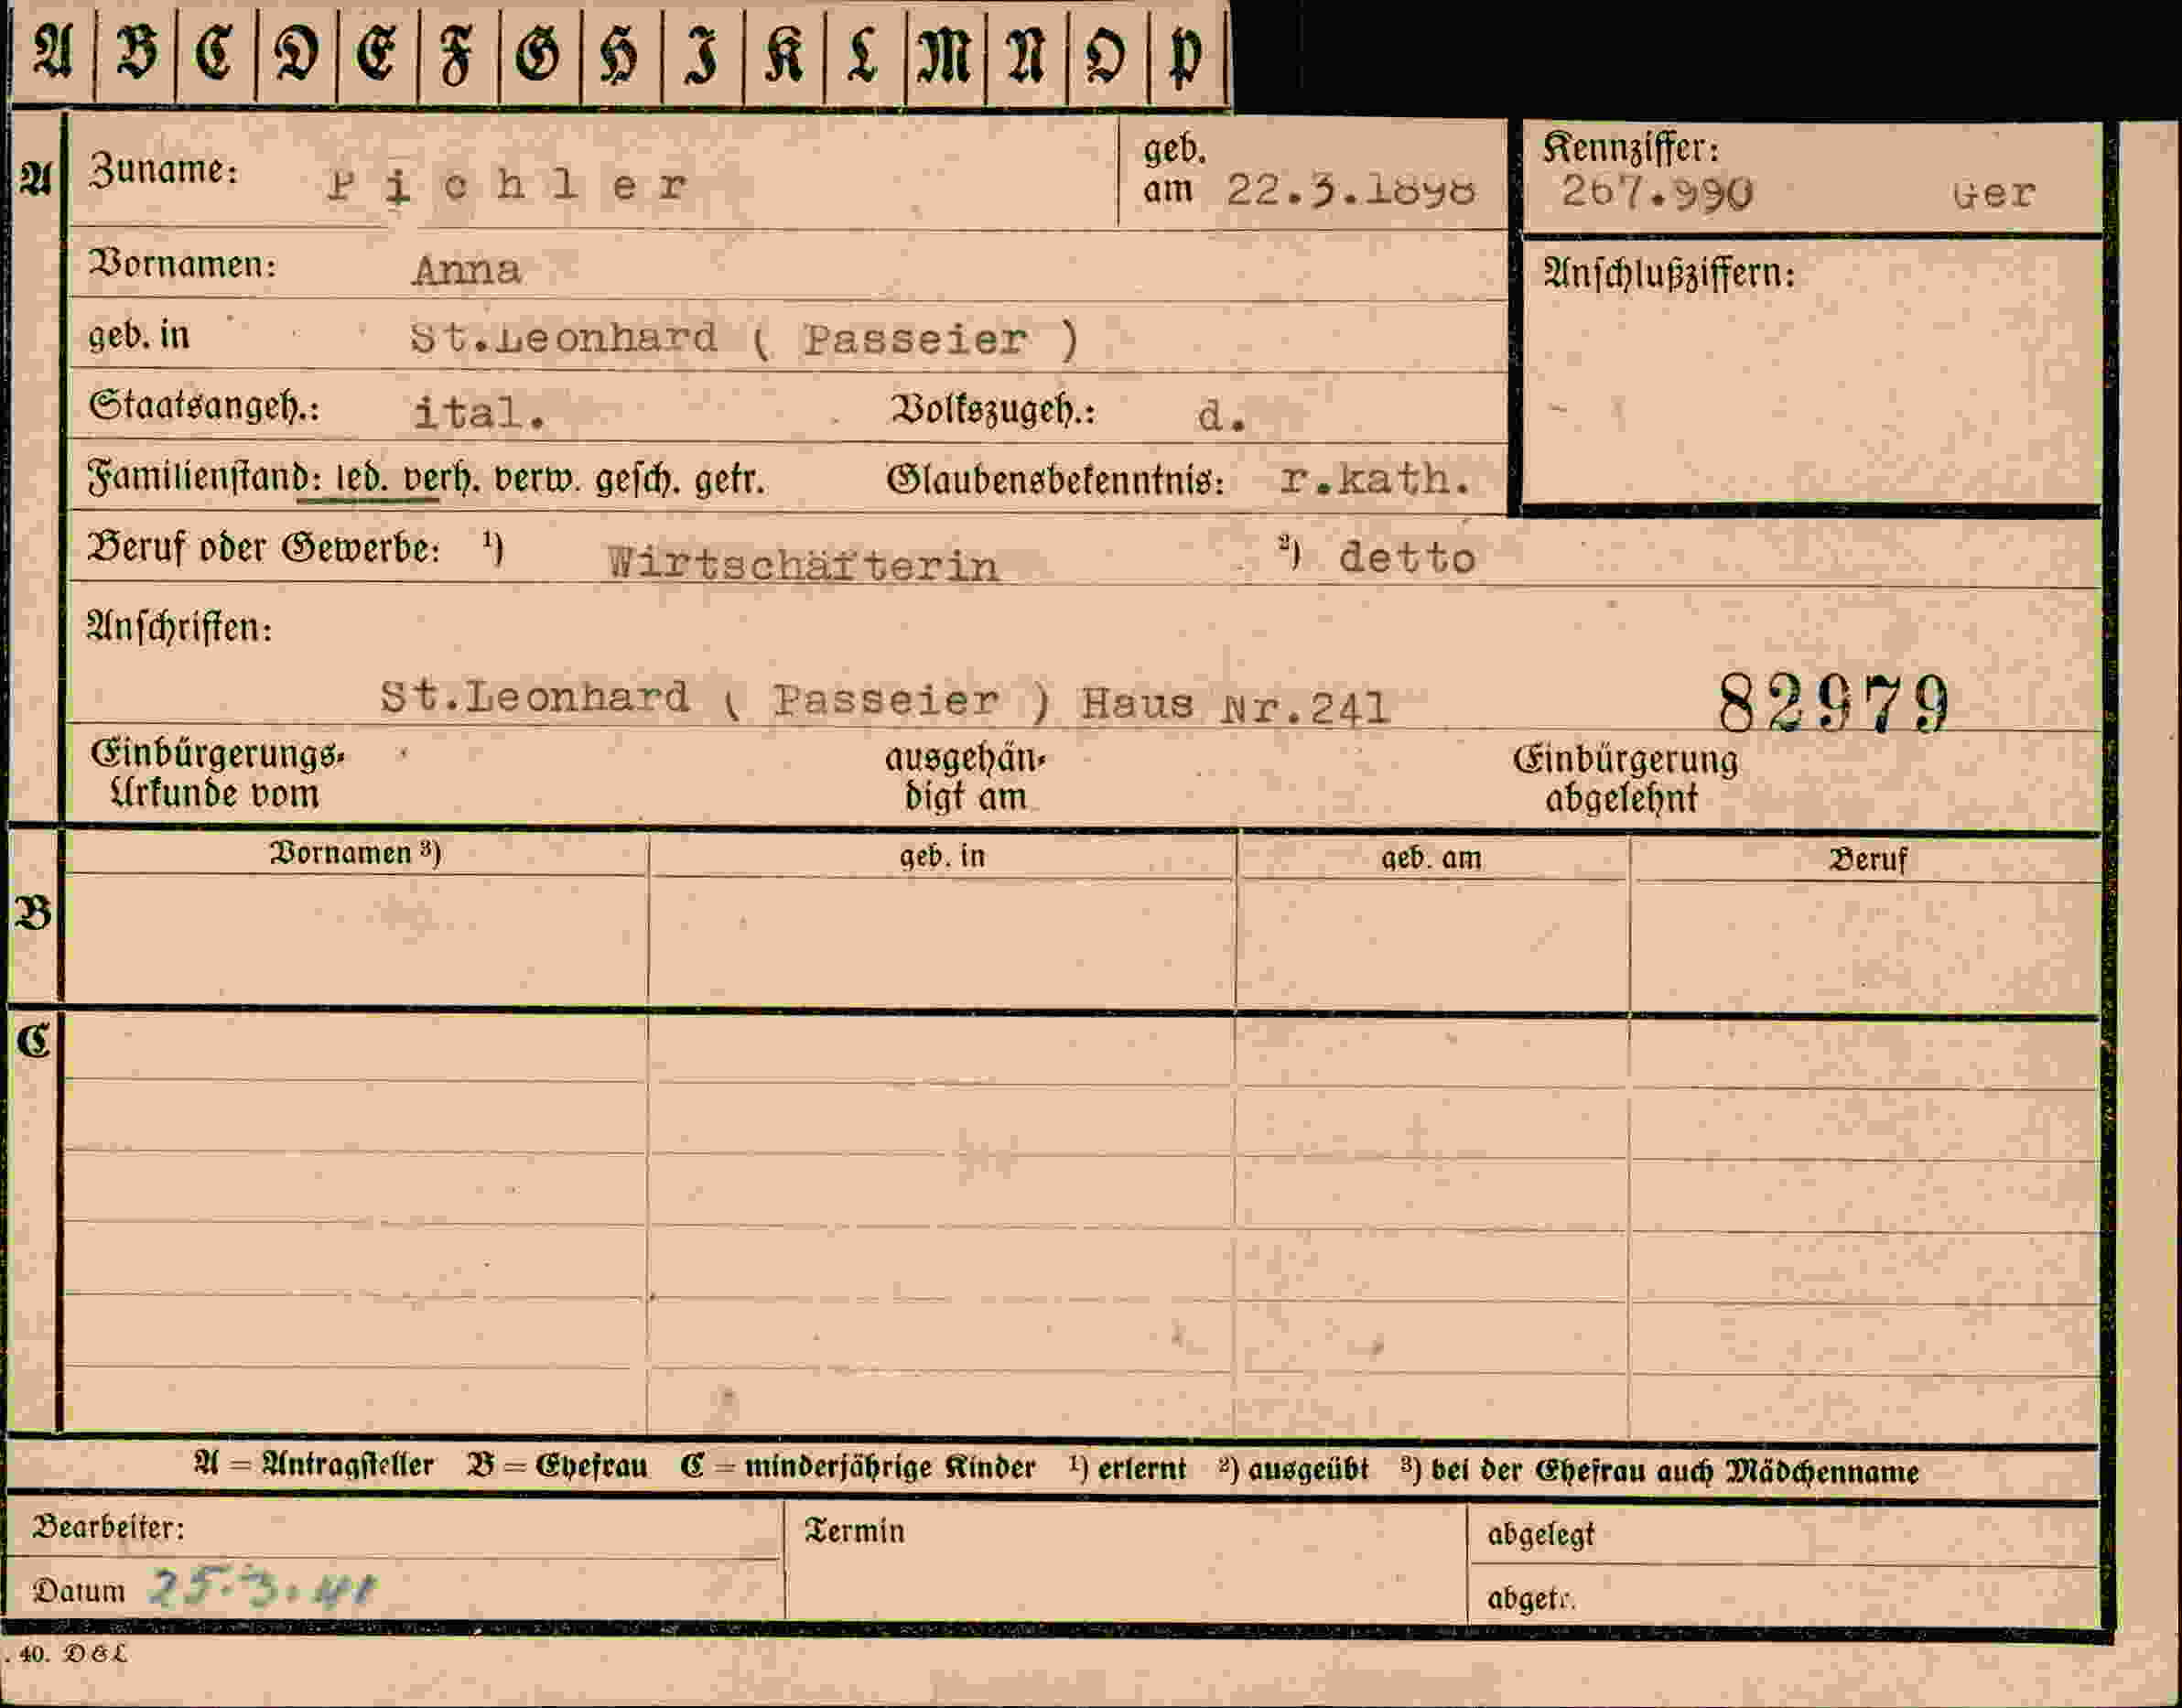 A B C D E F G H I K L M N O P
A Zuname: Pichler geb. am 22.3.1898 Kennziffer: 267.990 Ger
Vornamen: Anna Anschlußziffern:
geb. in St.Leonhard ( Passeier )
Staatsangeh.: ital. Volkszugeh.: d.
Familienstand: led. verh. verw. gesch. getr. Glaubensbekenntnis: r.kath.
Beruf oder Gewerbe: ¹) Wirtschäfterin ²) detto
Anschriften:
St.Leonhard ( Passeier ) Haus Nr.241 82979
Einbürgerungs- Urkunde vom ausgehän- digt am Einbürgerung abgelehnt
Vornamen ³) geb. in geb. am Beruf
B
C
A = Antragsteller B = Ehefrau C = minderjährige Kinder ¹) erlernt ²) ausgeübt ³) bei der Ehefrau auch Mädchenname
Bearbeiter: Termin abgelegt
Datum 25.3.41 abgetr.
. 40. D&L